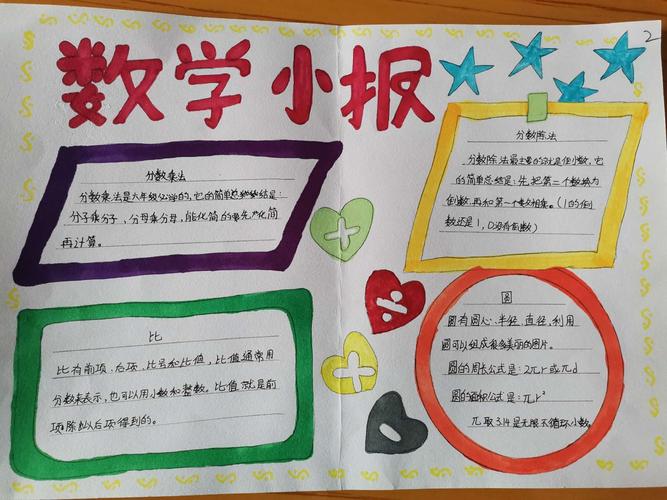 数学小报
2
分数乘法
分数乘法是六年级必学的,它的简单总结是:
分子乘分子、分母乘分母,能化简的要先化简
再计算。
分数除法
分数除法最主要的就是倒数,它
的简单总结是:先把第二个数换为
倒数,再和第一个数相乘。(1的倒
数还是1,0没有倒数)
比
比有前项、后项、比号和比值,比值通常用
分数来表示,也可以用小数和整数。比值就是前
项除以后项得到的。
圆
圆有圆心、半径、直径,利用
圆可以组成很多美丽的图片。
圆的周长公式是:2πr或πd
圆的面积公式是:πr²
π取3.14是无限不循环小数。